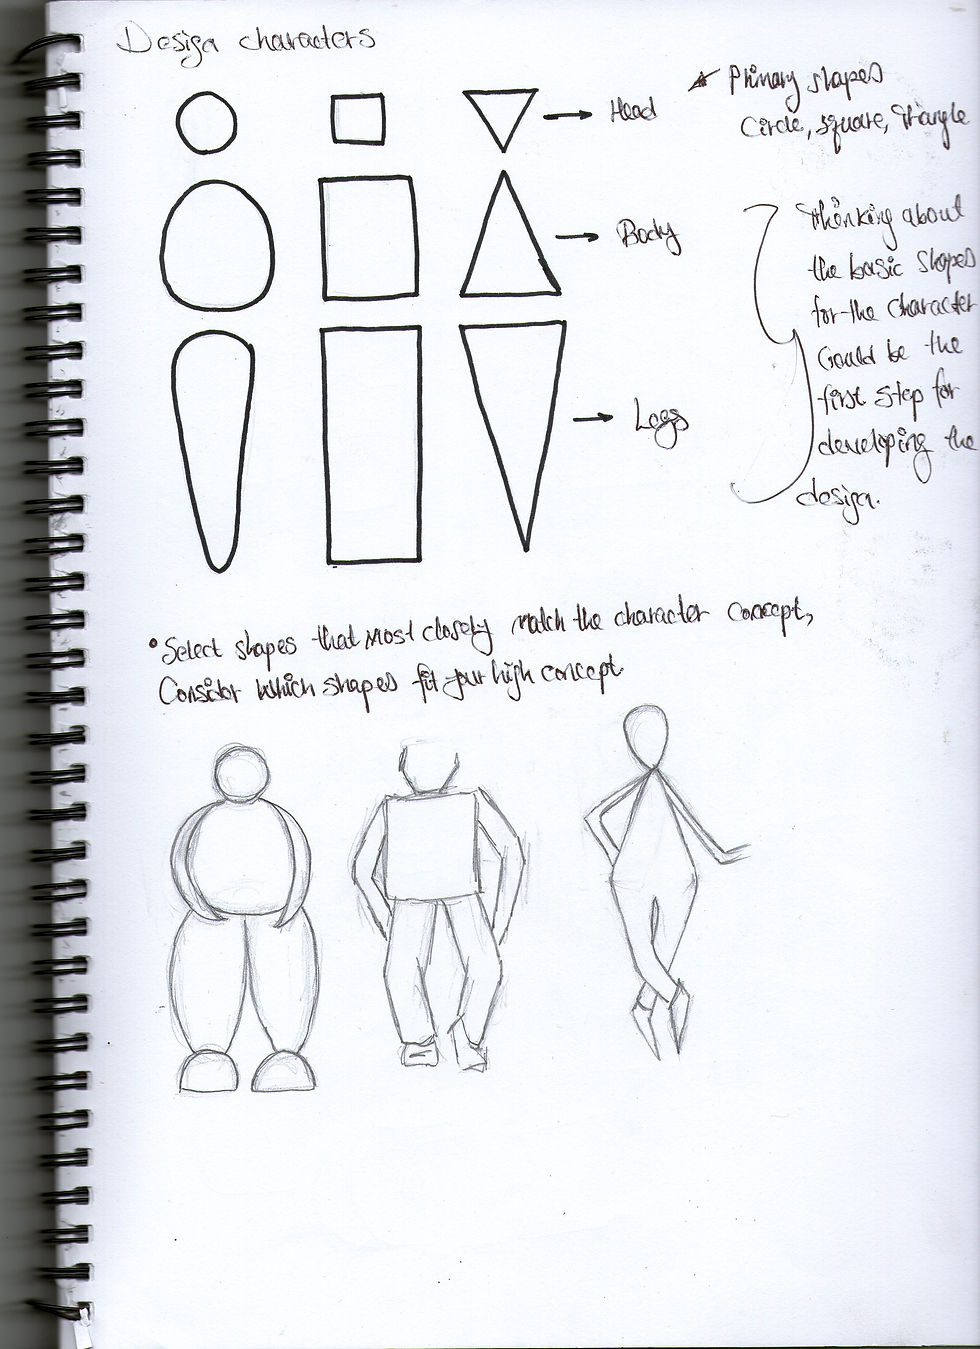 Design characters
Head
Body
Legs
Primary shapes
Circle, square, triangle
Thinking about
the basic shapes
for the character
Could be the
first step for
developing the
design.
• Select shapes that most closely match the character concept,
Consider which shapes fit your high concept